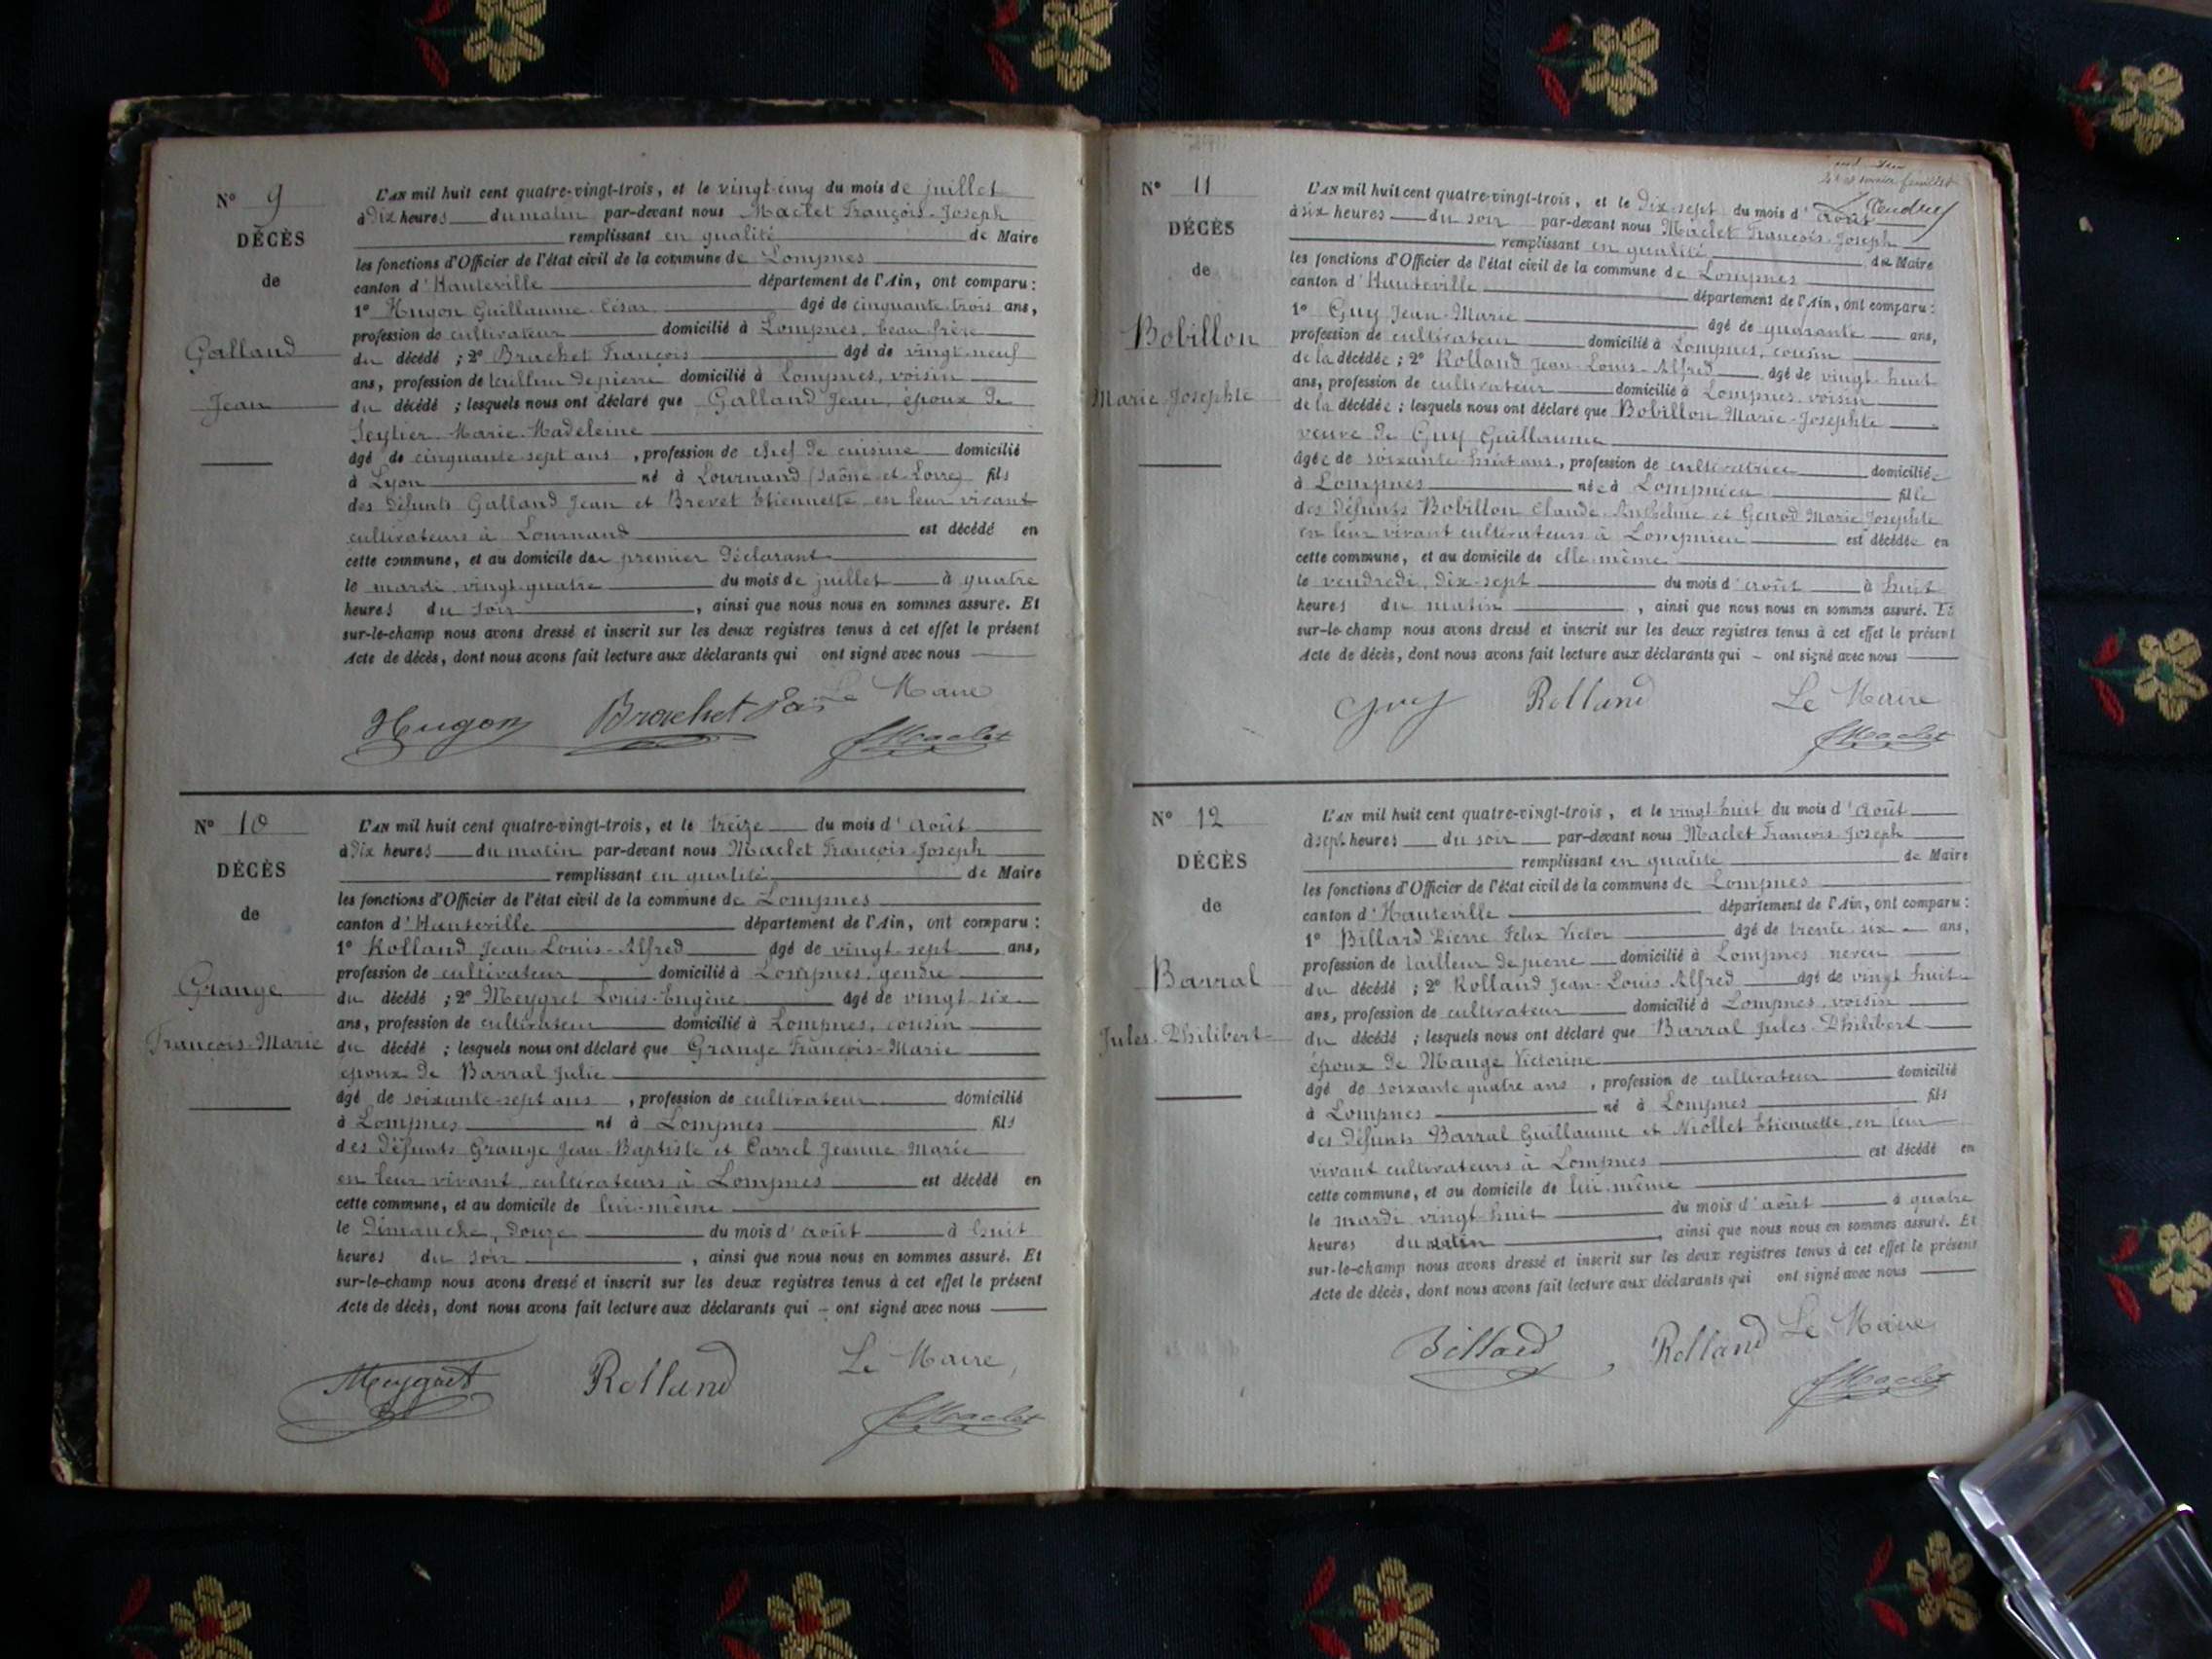 N° 9
DÉCÈS
de
Galland
Jean
L'AN mil huit cent quatre-vingt-trois, et le vingt-cinq du mois de juillet
à Dix heures du matin par-devant nous Maclet François-Joseph
remplissant en qualité de Maire
les fonctions d'Officier de l'état civil de la commune de Lompnes
canton d'Hauteville département de l'Ain, ont comparu :
1° Hugon Guillaume César âgé de cinquante-trois ans,
profession de cultivateur domicilié à Lompnes, beau-frère
du décédé ; 2° Brachet François âgé de vingt-neuf
ans, profession de tailleur de pierre domicilié à Lompnes, voisin
du décédé ; lesquels nous ont déclaré que Galland Jean, époux de
Marie-Madeleine
âgé de cinquante-sept ans, profession de chef de cuisine domicilié
à Lyon né à Lournand (Saône-et-Loire) fils
des défunts Galland Jean et Brevet Etiennette, en leur vivant
cultivateurs à Lournand est décédé en
cette commune, et au domicile du premier déclarant
le mardi vingt-quatre du mois de juillet à quatre
heures du soir, ainsi que nous nous en sommes assuré. Et
sur-le-champ nous avons dressé et inscrit sur les deux registres tenus à cet effet le présent
Acte de décès, dont nous avons fait lecture aux déclarants qui ont signé avec nous
Le Maire
Hugon Brachet fois Maclet
N° 10
DÉCÈS
de
Grange
François-Marie
L'AN mil huit cent quatre-vingt-trois, et le treize du mois d'août
à Dix heures du matin par-devant nous Maclet François-Joseph
remplissant en qualité de Maire
les fonctions d'Officier de l'état civil de la commune de Lompnes
canton d'Hauteville département de l'Ain, ont comparu :
1° Rolland Jean-Louis-Alfred âgé de vingt-sept ans,
profession de cultivateur domicilié à Lompnes, gendre
du décédé ; 2° Meygret Louis-Eugène âgé de vingt-six
ans, profession de cultivateur domicilié à Lompnes, cousin
du décédé ; lesquels nous ont déclaré que Grange François-Marie
époux de Barral Julie
âgé de soixante-sept ans, profession de cultivateur domicilié
à Lompnes né à Lompnes fils
des défunts Grange Jean-Baptiste et Carrel Jeanne Marie
en leur vivant, cultivateurs à Lompnes est décédé en
cette commune, et au domicile de lui-même
le dimanche, douze du mois d'août à huit
heures du soir, ainsi que nous nous en sommes assuré. Et
sur-le-champ nous avons dressé et inscrit sur les deux registres tenus à cet effet le présent
Acte de décès, dont nous avons fait lecture aux déclarants qui - ont signé avec nous
Le Maire,
Meygret Rolland Maclet
N° 11
DÉCÈS
de
Bobillon
Marie-Josephte
L'AN mil huit cent quatre-vingt-trois, et le dix-sept du mois d'août
à six heures du soir par-devant nous Maclet François-Joseph
remplissant en qualité de Maire
les fonctions d'Officier de l'état civil de la commune de Lompnes
canton d'Hauteville département de l'Ain, ont comparu :
1° Guy Jean-Marie âgé de quarante ans,
profession de cultivateur domicilié à Lompnes, cousin
de la décédée ; 2° Rolland Jean-Louis-Alfred âgé de vingt-huit
ans, profession de cultivateur domicilié à Lompnes, voisin
de la décédée ; lesquels nous ont déclaré que Bobillon Marie-Josephte
veuve de Guy Guillaume
âgée de soixante-huit ans, profession de cultivatrice domiciliée
à Lompnes née à Lompnieu fille
des défunts Bobillon Claude-Anthelme et Genod Marie Josephte
en leur vivant cultivateurs à Lompnieu est décédée en
cette commune, et au domicile de elle-même
le vendredi, dix-sept du mois d'août à huit
heures du matin, ainsi que nous nous en sommes assuré. Et
sur-le-champ nous avons dressé et inscrit sur les deux registres tenus à cet effet le présent
Acte de décès, dont nous avons fait lecture aux déclarants qui - ont signé avec nous
Guy Rolland Le Maire
Maclet
N° 12
DÉCÈS
de
Barral
Jules-Philibert
L'AN mil huit cent quatre-vingt-trois, et le vingt-huit du mois d'août
à sept heures du soir par-devant nous Maclet François-Joseph
remplissant en qualité de Maire
les fonctions d'Officier de l'état civil de la commune de Lompnes
canton d'Hauteville département de l'Ain, ont comparu :
1° Billard Pierre Félix Victor âgé de trente-six ans,
profession de tailleur de pierre domicilié à Lompnes neveu
du décédé ; 2° Rolland Jean-Louis Alfred âgé de vingt huit
ans, profession de cultivateur domicilié à Lompnes, voisin
du décédé ; lesquels nous ont déclaré que Barral Jules-Philibert
époux de Mange Victorine
âgé de soixante quatre ans, profession de cultivateur domicilié
à Lompnes né à Lompnes fils
des défunts Barral Guillaume et Niollet Etiennette, en leur
vivant cultivateurs à Lompnes est décédé en
cette commune, et au domicile de lui-même
le mardi vingt-huit du mois d'août à quatre
heures du matin, ainsi que nous nous en sommes assuré. Et
sur-le-champ nous avons dressé et inscrit sur les deux registres tenus à cet effet le présent
Acte de décès, dont nous avons fait lecture aux déclarants qui ont signé avec nous
Billard Rolland Le Maire
Maclet